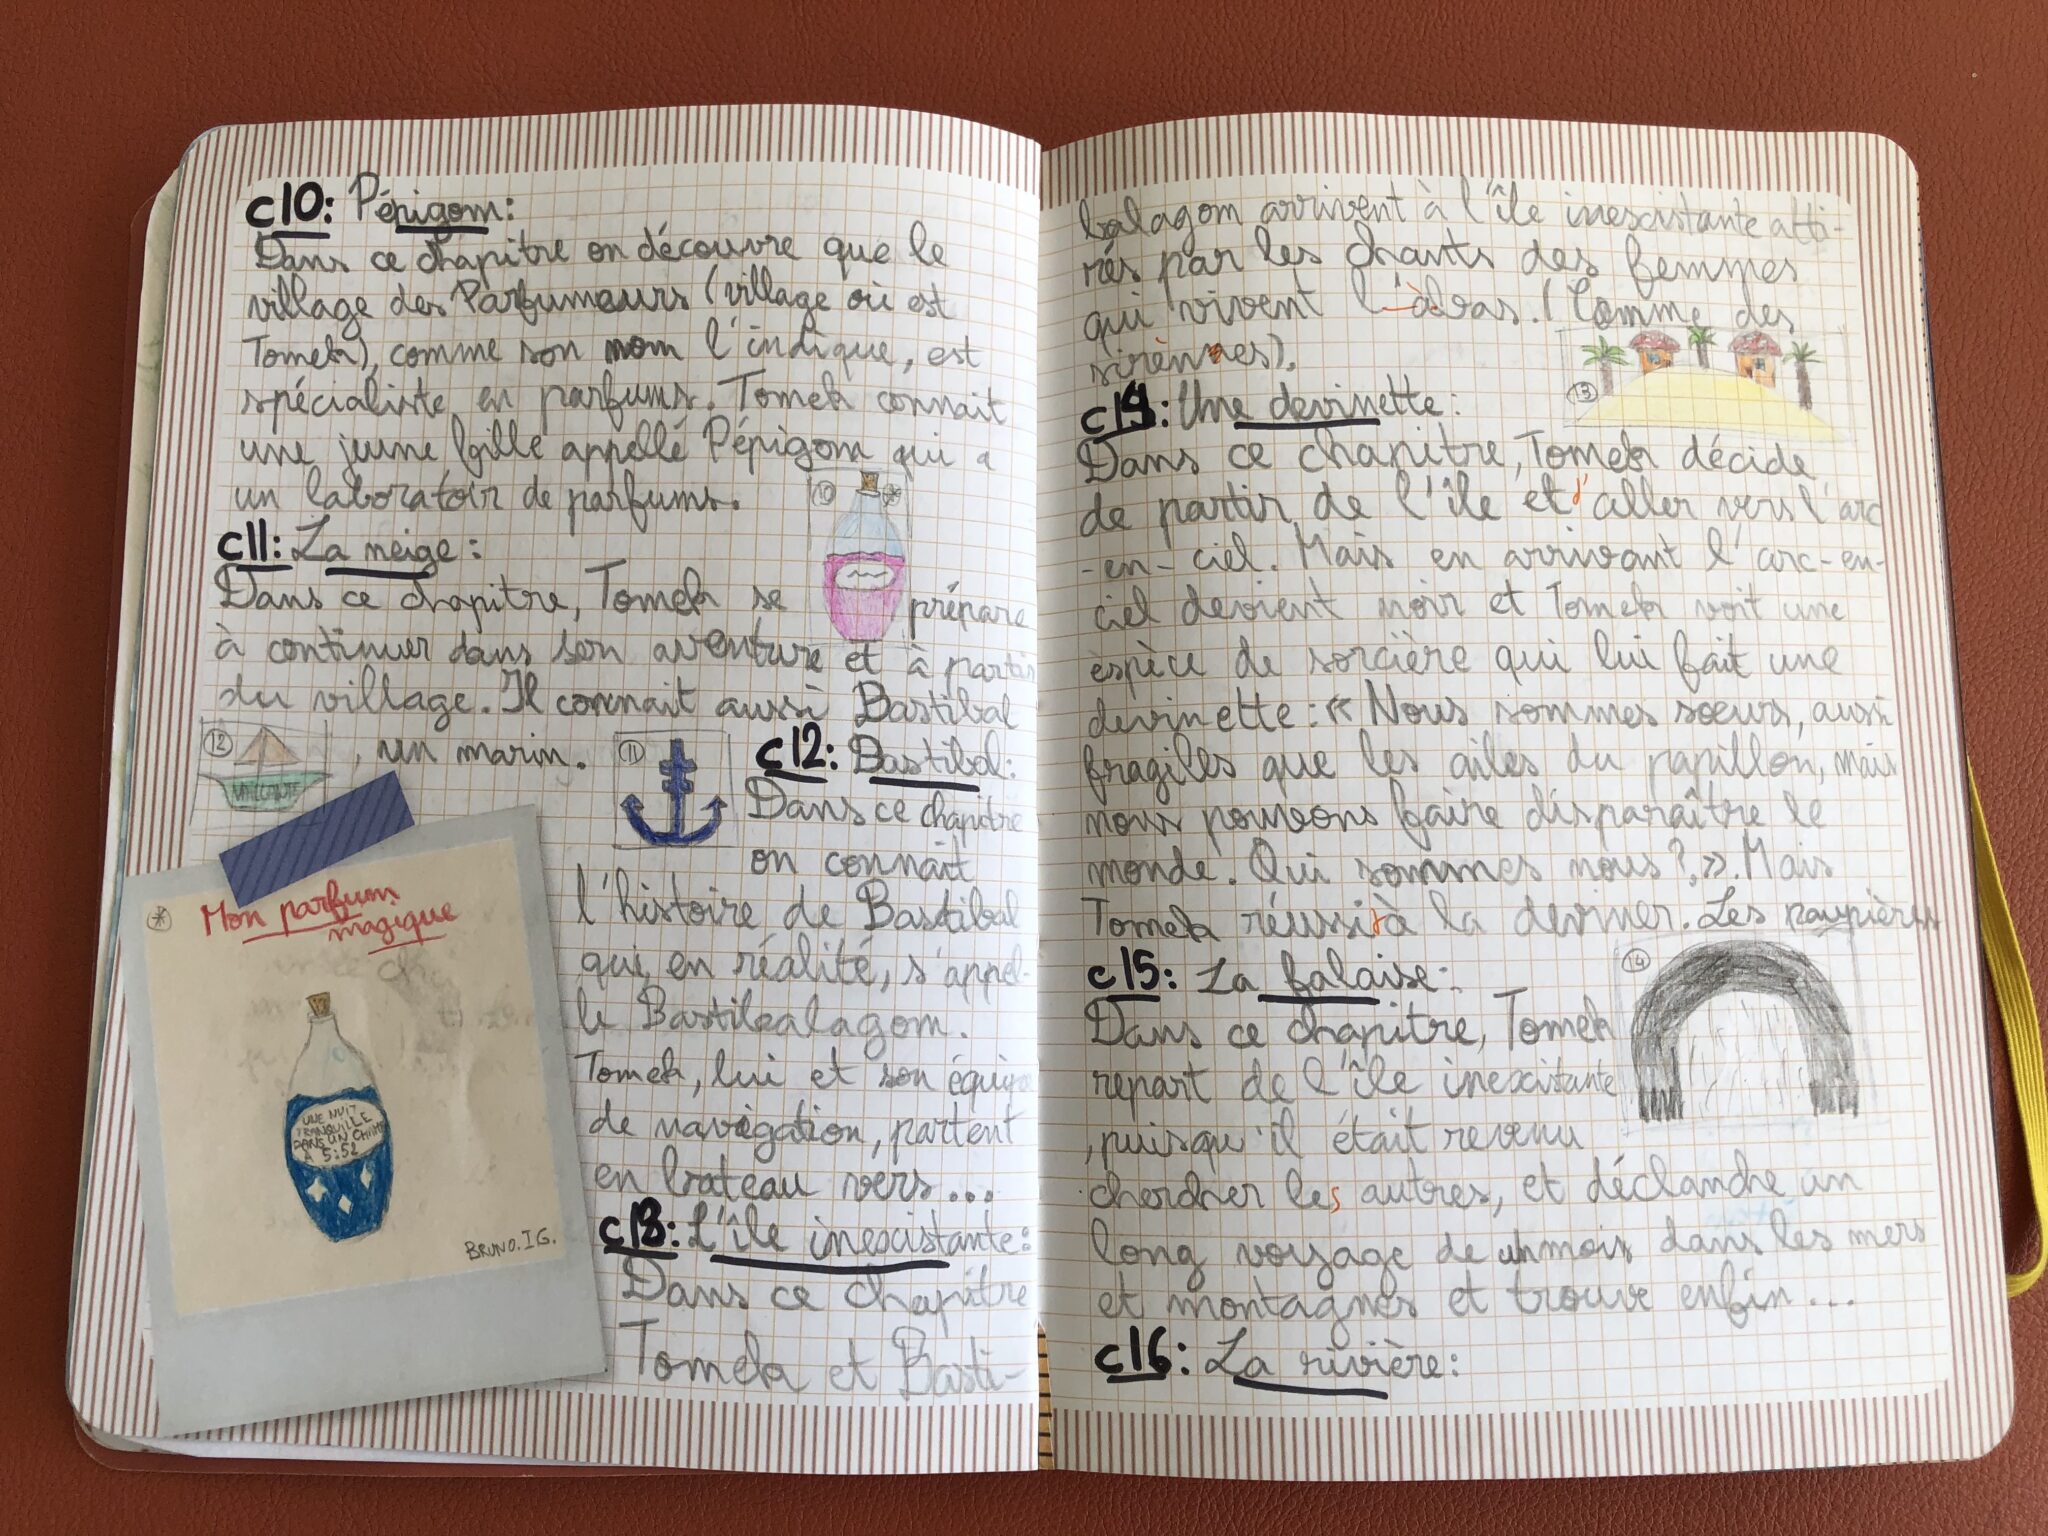 c10: Pépigom:
Dans ce chapitre on découvre que le
village des Parfumeurs (village où est
Tomek), comme son nom l'indique, est
spécialiste en parfums. Tomek connait
une jeune fille appellé Pépigom qui a
un laboratoir de parfums.
10 *
c11: La neige:
Dans ce chapitre, Tomek se prépare
à continuer dans son aventure et à partir
du village. Il connait aussi Bastibal
, un marin.
12
VAILLANTE
11
c12: Bastibal:
Dans ce chapitre
on connaît
l'histoire de Bastibal
qui, en réalité, s'appel-
le Bastibalagom.
Tomek, lui et son équipe
de navigation, partent
en bateau vers...
c13: L'île inexistante:
Dans ce chapitre
Tomek et Basti-
* Mon parfum
magique
UNE NUIT
TRANQUILLE
DANS UN CHAMP
A 5:52
BRUNO.IG.
balagom arrivent à l'île inexistante atti-
rés par les chants des femmes
qui vivent là-bas. (Comme des
sirènes).
13
c14: Une devinette:
Dans ce chapitre, Tomek décide
de partir de l'île et d'aller vers l'arc
-en-ciel. Mais en arrivant l'arc-en-
ciel devient noir et Tomek voit une
èspèce de sorcière qui lui fait une
devinette: « Nous sommes sœurs, aussi
fragiles que les ailes du papillon, mais
nous pouvons faire disparaître le
monde. Qui sommes nous?,». Mais
Tomek réussit à la deviner. Les paupières
c15: La falaise:
14
Dans ce chapitre, Tomek
repart de l'île inexistante
, puisqu'il était revenu
chercher les autres, et déclanche un
long voyage de un mois dans les mers
et montagnes et trouve enfin...
c16: La rivière: